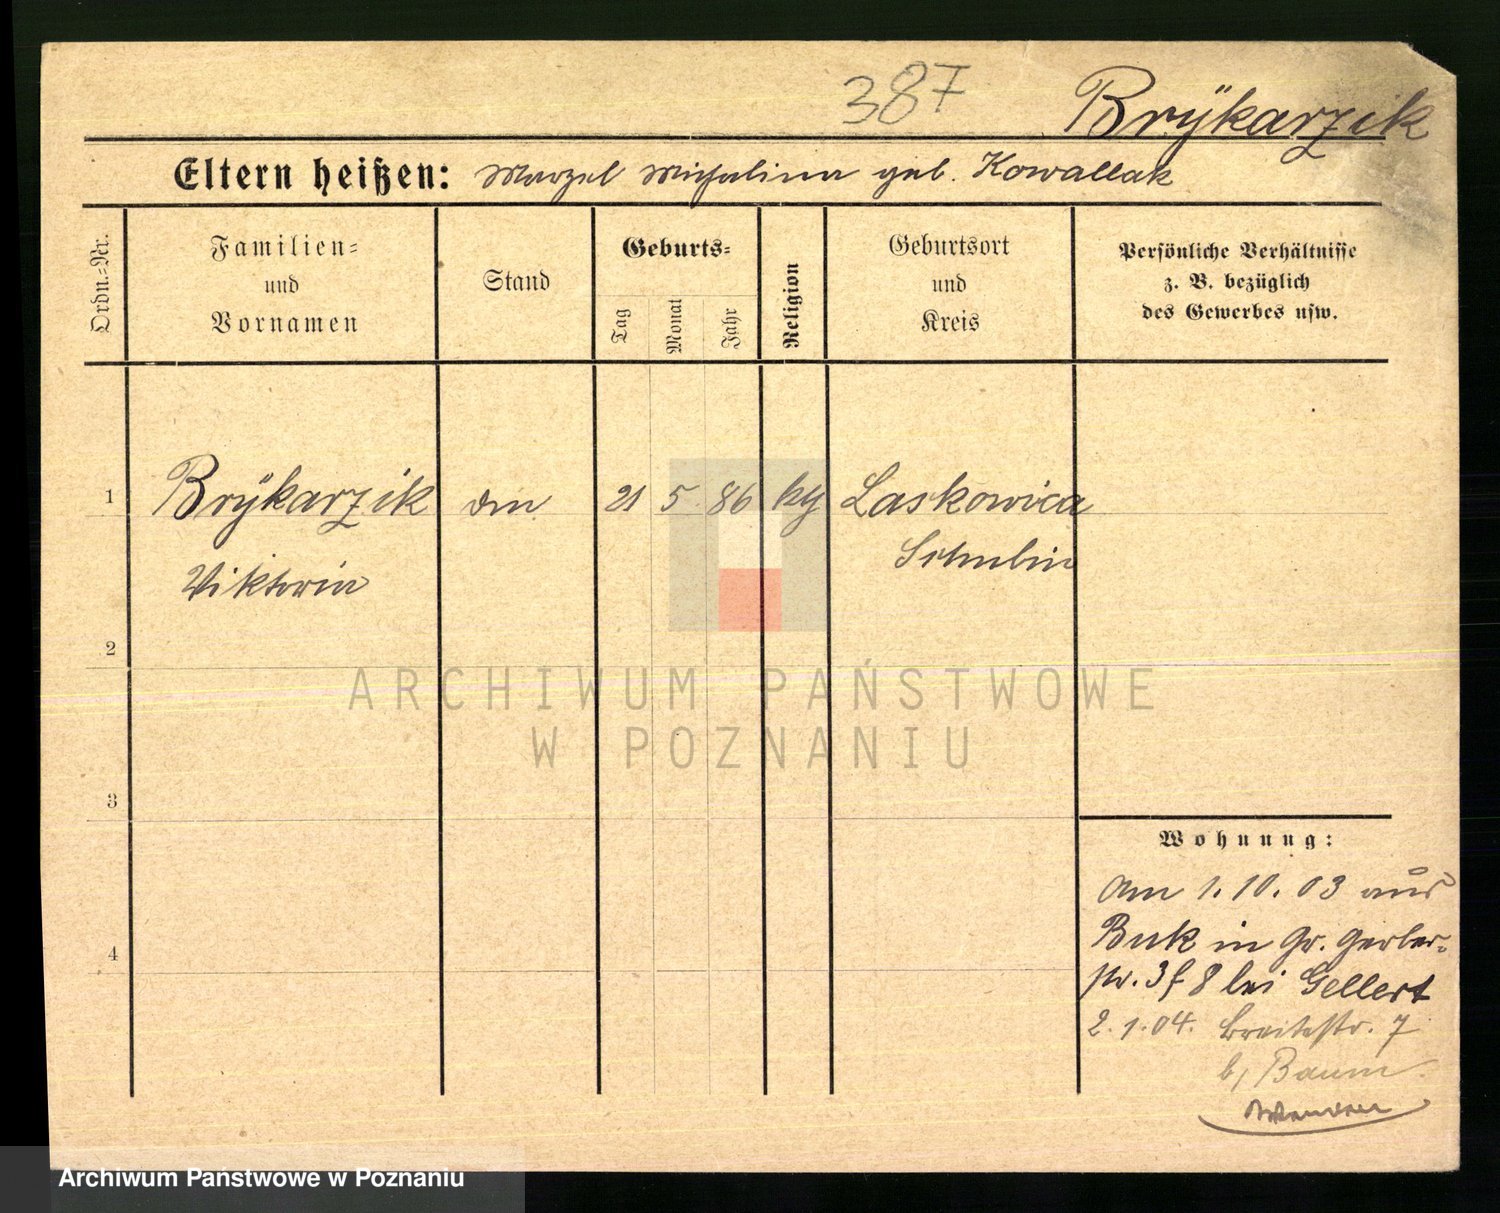 387
Brÿkarzik
Eltern heißen: Marzel Michalina geb. Kowallak
Ordn.=Nr.
Familien=
und
Vornamen
Stand
Geburts=
Tag
Monat
Jahr
Religion
Geburtsort
und
Kreis
Persönliche Verhältnisse
z. B. bezüglich
des Gewerbes usw.
1 Brÿkarzik 21 5. 86 Laskowica
Viktoria Schubin
2
3
4
Wohnung:
Am 1. 10. 03 aus
Buk in Gr. Gerber=
str. 38 bei Gellert
2. 1. 04. Breitestr. 7
b, Baum.
ARCHIWUM PAŃSTWOWE
W POZNANIU
Archiwum Państwowe w Poznaniu